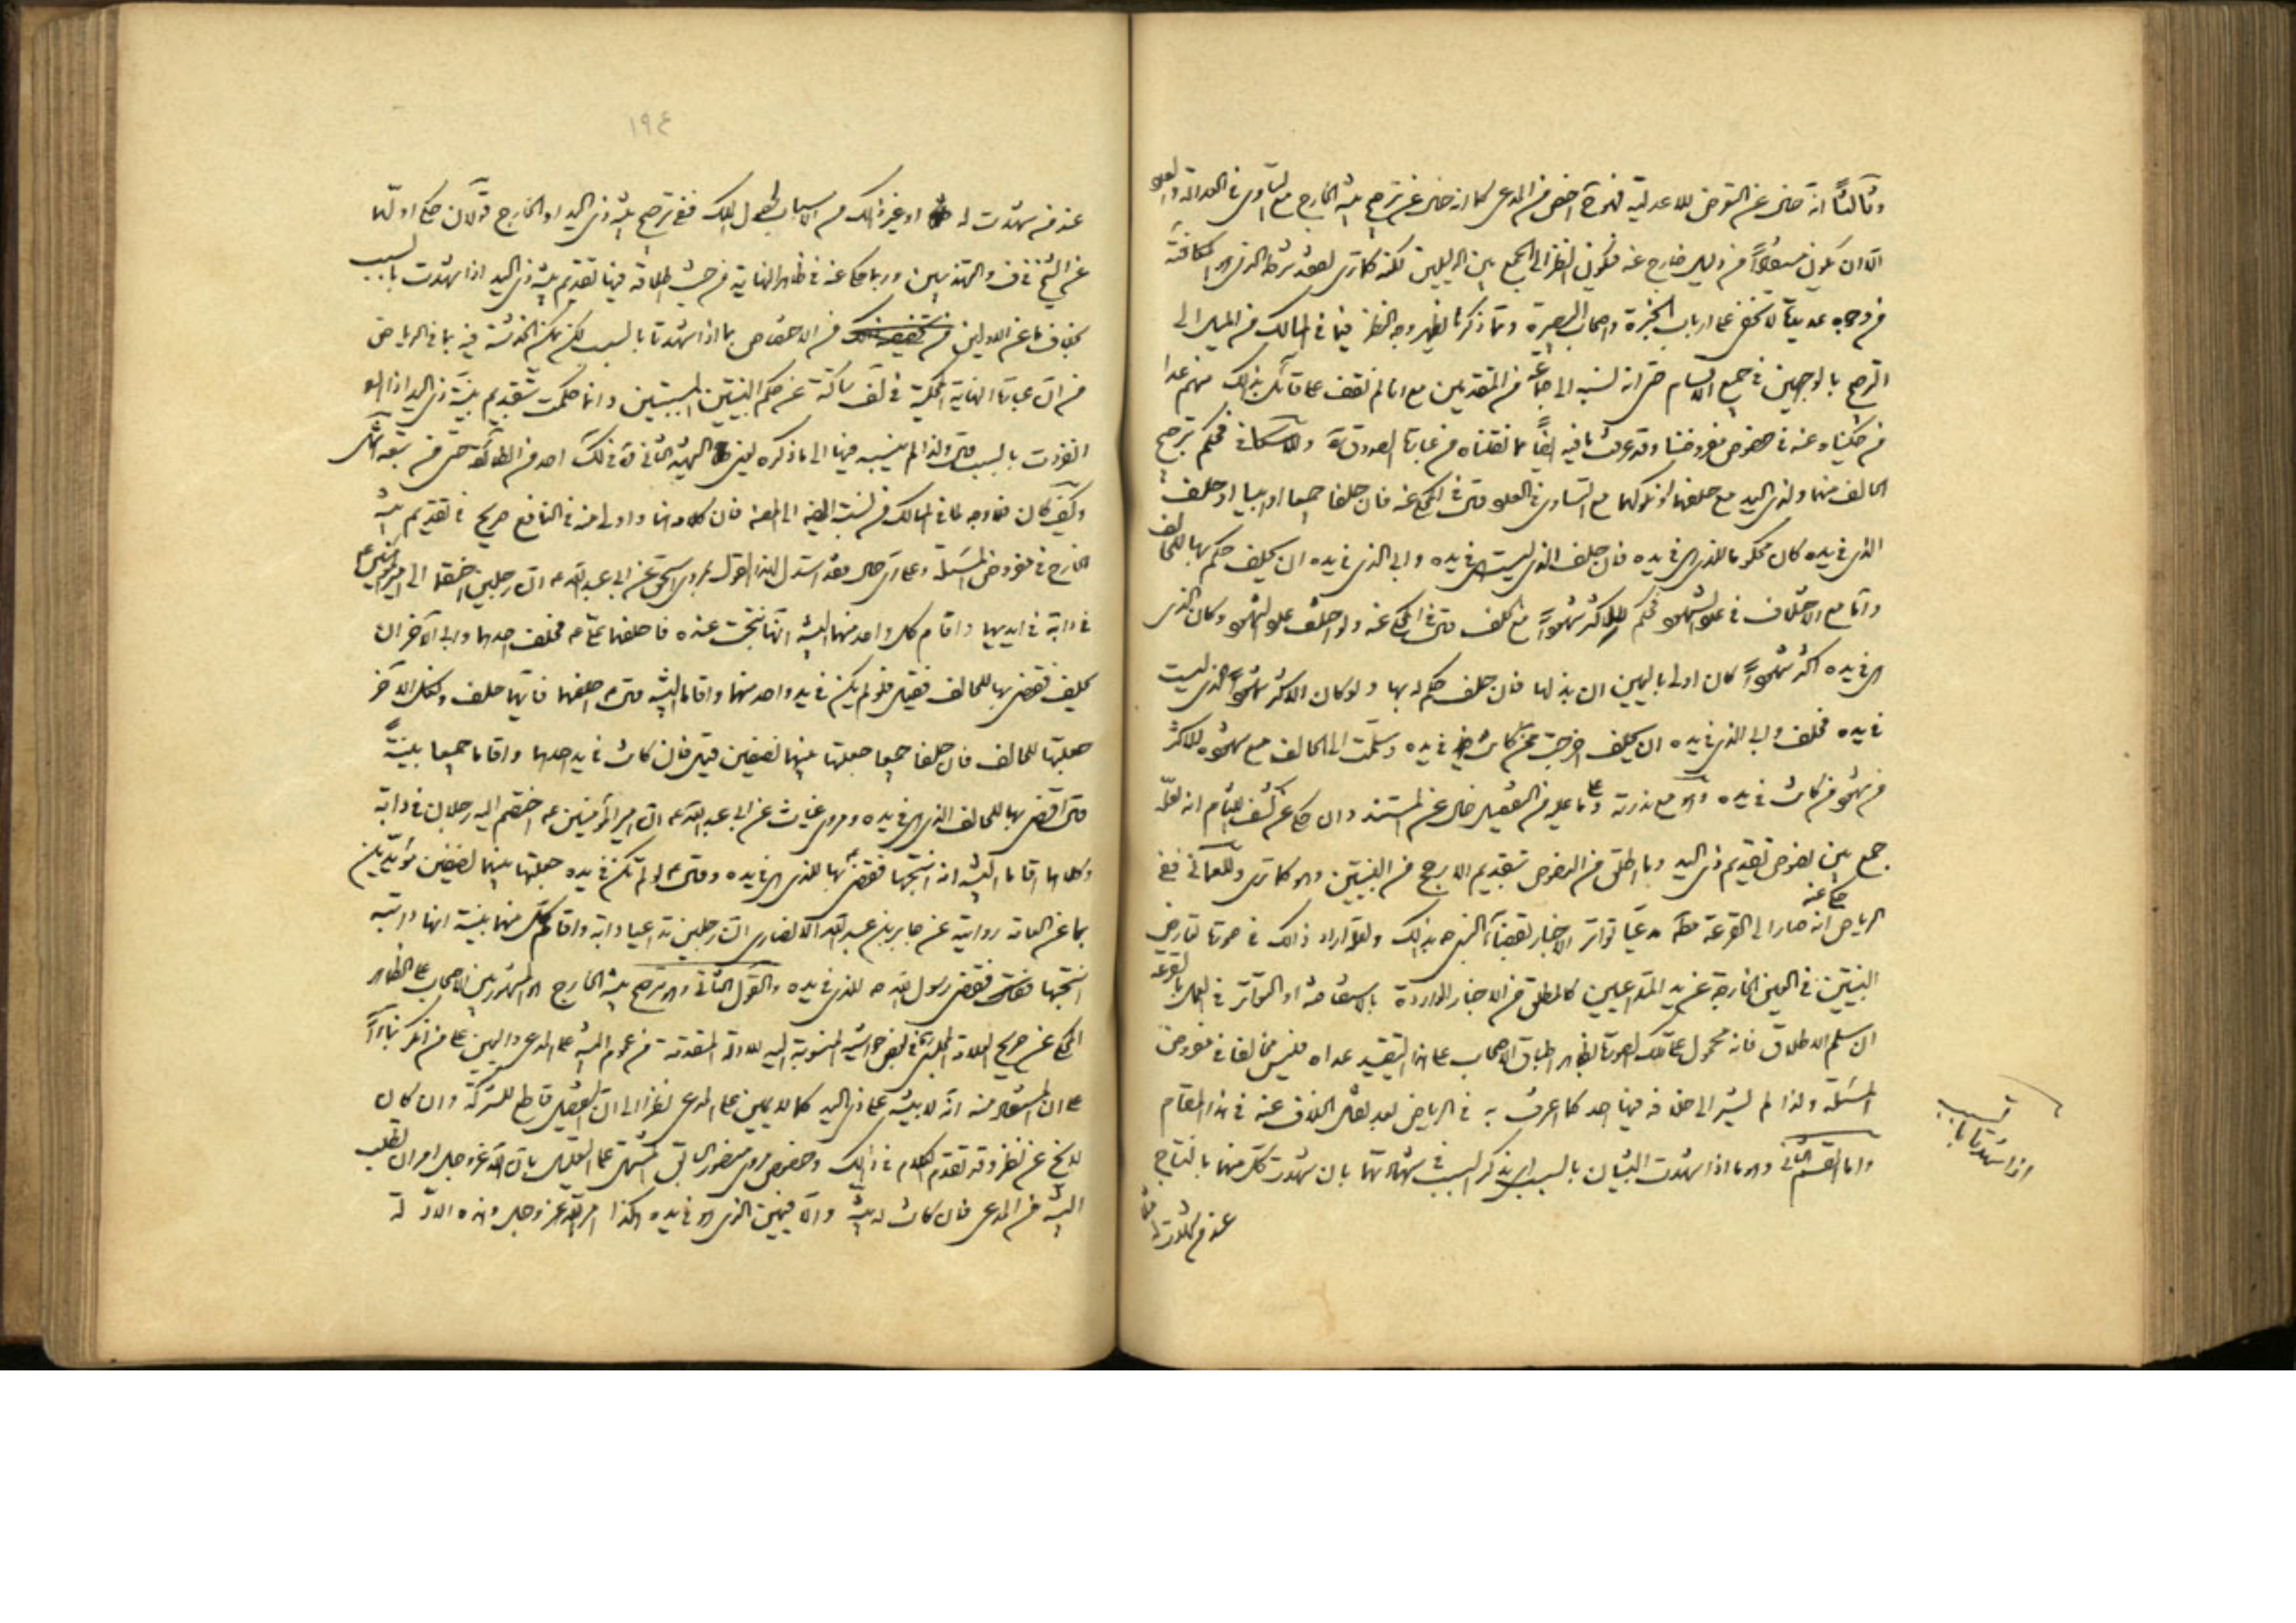 وثالثا انه خال عن التعرض للاعدلية فهو اخص من المدعى كما انه خال عن ترجيح بينة الخارج مع التساوى فى العدالة والعدد
الا ان يكون مستفادا من دليل خارج عنه فيكون النظر الى الجمع بين الدليلين لكنه كما ترى لفقد شرطه الذى هو المكافئة
من وجوه عديدة لا تخفى على ارباب الخبرة واصحاب البصيرة ومما ذكرنا يظهر وجه النظر فيما فى المسالك من الميل الى
الترجيح بالوجهين فى جميع الاقسام حتى انه نسبه الى جماعة من المتقدمين مع انا لم نقف على قائل بذلك منهم عدا
من حكيناه عنه فى خصوص مفروضنا وقد عرفت ما فيه ايضا مما نقلناه من عبارة الصدوق وللاسكافى فحكم بترجيح
الحالف منهما ولذى اليد مع حلفهما او نكولهما مع التساوى فى العدد قال فى المحكى عنه فان حلفا جميعا او ابيا او حلف
الذى فى يده كان محكوما للذى هى فى يده فان حلف الذى ليست فى يده وابى الذى فى يده ان يحلف حكم بها للحالف
واما مع الاختلاف فى عدد الشهود فحكم للاكثر شهودا مع الحلف قال فى المحكى عنه ولو اختلف عدد الشهود وكان الذى
هى فى يده اكثر شهودا كان اولى باليمين ان بذلها فان حلف حكم له بها ولو كان الاكثر شهودا الذى ليست
فى يده فحلف وابى الذى فى يده ان يحلف اخرجت ممن كانت فى يده وسلمت الى الحالف مع شهوده الاكثر
من شهود من كانت فى يده وهو مع ندرته وما عليه من التفصيل خال عن المستند وان حكى عن كشف اللثام انه لعله
جمع بين نصوص تقديم ذى اليد وما اطلق من النصوص بتقديم الارجح من البينتين وهو كما ترى وللعمانى ففى
الرياض حكى عنه انه صار الى القرعة مدعيا تواتر الاخبار بقضاء النبى ص بذلك ولعله اراد ذلك فى صورة تعارض
البينتين فى العين الخارجة عن يد المتداعيين كالمطلق من الاخبار الواردة بالاستفاضة او التواتر فى العمل بالقرعة
ان سلم الاطلاق فانه محمول على تلك الصورة لظهور اطباق الاصحاب على هذا التقييد عداه فليس مخالفا فى مفروض
المسئلة ولذا لم يشر الى خلافه فيها احد كما اعترف به فى الرياض بعد نقل الخلاف عنه فى هذا المقام
واما القسم الثانى وهو ما اذا شهدت البينتان بالسبب اى بذكر السبب فى شهادتهما بان شهدت كل منهما بالنتاج
عند من شهدت له
اذا شهدتا بالسبب
١٩٤
عند من شهدت له او غير ذلك من الاسباب لحصول الملك ففى ترجيح بينة ذى اليد او الخارج قولان حكى اولهما
عن الشيخ فى ف والتهذيبين وربما حكى عنه فى ظاهر النهاية من حيث اطلاقه فيها تقديم بينة ذى اليد اذا شهدت بالسبب
بخلاف ما عن الاولين من الاختصاص بما اذا شهدتا بالسبب لكن يمكن الخدشة فيه بما فى الرياض
من ان عبارة النهاية المحكية فى لف ساكتة عن حكم البينتين المسببتين وانما حكمت بتقديم بينة ذى اليد اذا
انفردت بالسبب قال ولذا لم ينسبه فيها الى ما ذكره الشهيد الثانى فى لك احد من الطائفة حتى من تبعه
وكيف كان فما وجه لما فى المسالك من نسبة الى المصنف فان كلامه هنا واولى منه فى النافع صريح فى تقديم بينة
الخارج فى مفروض المسئلة وعلى اى حال فقد استدل لهذا القول بمروى اسحق عن ابى عبد الله ع ان رجلين اختصما الى امير المؤمنين ع
فى دابة فى ايديهما واقام كل واحد منهما البينة انها نتجت عنده فاحلفهما على ع فحلف احدهما وابى الاخر ان
يحلف فقضى بها للحالف فقيل فلو لم يكن فى يد واحد منهما واقاما البينة قال احلفهما فايهما حلف ونكل الاخر
جعلتها للحالف فان حلفا جميعا جعلتها بينهما نصفين قيل فان كانت فى يد احدهما واقاما جميعا بينة
قال اقضى بها للحالف الذى هى فى يده ومروى غياث عن ابى عبد الله ع ان امير المؤمنين ع اختصم اليه رجلان فى دابة
وكلاهما اقاما البينة انه انتجها فقضى بها للذى هى فى يده وقال لو لم تكن فى يده جعلتها بينهما نصفين مؤيدين
بما عن العامة روايته عن جابر بن عبد الله الانصارى ان رجلين تداعيا دابة واقام كل منهما بينة انها دابته
انتجها فقضى رسول الله ص للذى فى يده والقول الثانى وهو ترجيح بينة الخارج هو المشهور بين الاصحاب على الظاهر
المحكى عن صريح العلامة المجلسى فى بعض حواشيه المنسوبة اليه للادلة المتقدمة من عموم البينة على المدعى واليمين على من انكر بناء
على ان المستفاد منه انه لا بينة على ذى اليد كما لا يمين على المدعى نظرا الى ان التفصيل قاطع للشركة وان كان
لا يخ عن نظر وقد تقدم الكلام فى ذلك وخصوص مروى منصور السابق المشتمل على التعليل بان الله عز وجل امر ان تطلب
البينة من المدعى فان كانت له بينة والا فيمين الذى هو فى يده هكذا امر الله عز وجل وهذه الادلة